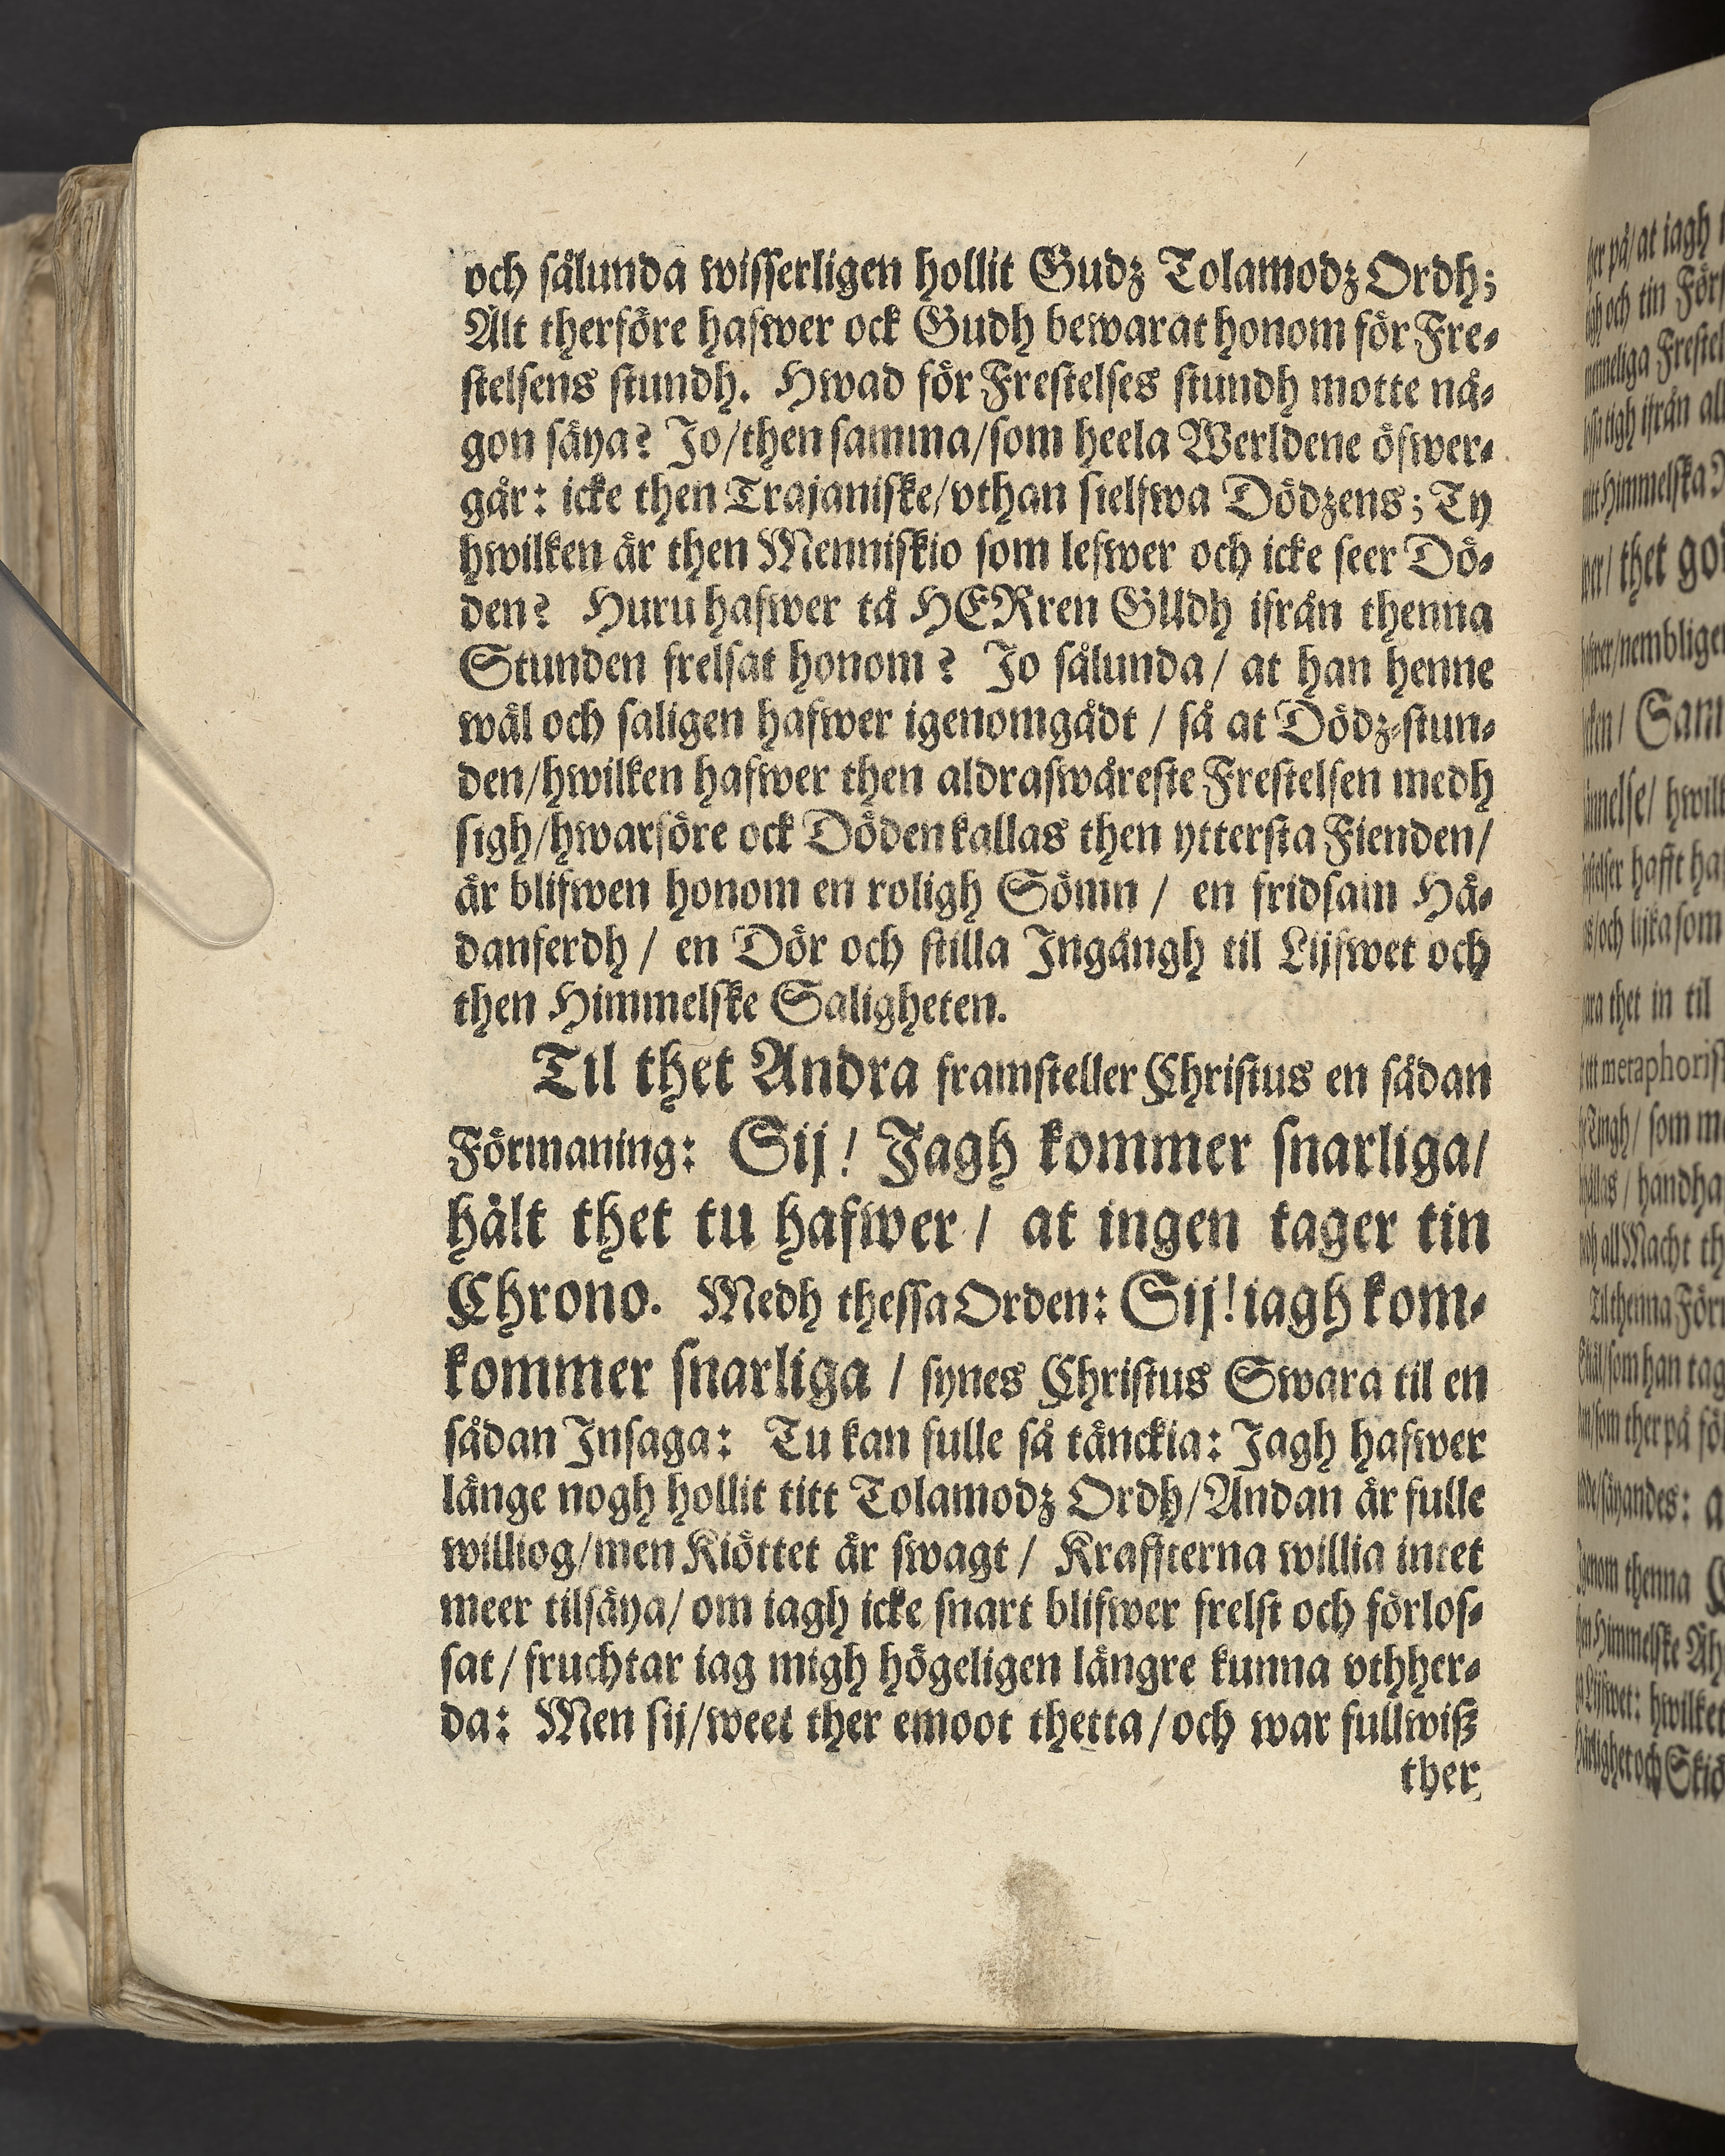 och sålunda wisserligen hollit Gudz Tolamodz Ordh;
Alt therföre hafwer ock Gudh bewarat honom för Fre-
stelsens stundh. Hwad för Frestelses stundh motte nå-
gon säya? Jo/then samma/som heela Werldene öfwer-
går: icke then Trajaniske/vthan sielfwa Dödzens; Ty
hwilken är then Menniskio som lefwer och icke seer Dö-
den? Huru hafwer tå HERren GUdh ifrån thenna
Stunden frelsat honom? Jo sålunda/ at han henne
wäl och saligen hafwer igenomgådt / så at Dödz-stun-
den/hwilken hafwer then aldraswåreste Frestelsen medh
sigh/hwarföre ock Döden kallas then yttersta Fienden/
är blifwen honom en roligh Sömn / en fridsam Hä-
danferdh / en Dör och stilla Ingångh til Lijfwet och
then Himmelske Saligheten.
Til thet Andra framsteller Christus en sådan
Förmaning: Sij! Jagh kommer snarliga/
hält thet tu hafwer / at ingen tager tin
Chrono. Medh thessa Orden: Sij! iagh kom-
kommer snarliga / synes Christus Swara til en
sådan Insaga: Tu kan fulle så tänckia: Jagh hafwer
länge nogh hollit titt Tolamodz Ordh/Andan är fulle
williog/men Kiöttet är swagt / Kraffterna willia intet
meer tilsäya/ om iagh icke snart blifwer frelst och förlos-
sat/ fruchtar iag migh högeligen längre kunna vthher-
da: Men sij/weet ther emoot thetta/och war fullwiß
ther
er på/at iagh
och tin Förs
menneliga Frestel
tigh ifrån all
Himmelska
thet go
/nembligen
Sann
/ hwilk
hafft ha
/och lijka som
thet in til
metaphoris
Tingh/ som m
/ handha
all Macht th
Til thenna Förm
/som han tag
/som ther på fö
/säyandes: a
Igenom thenna
Himmelske
Lijfwet: hwilket
och Skiö